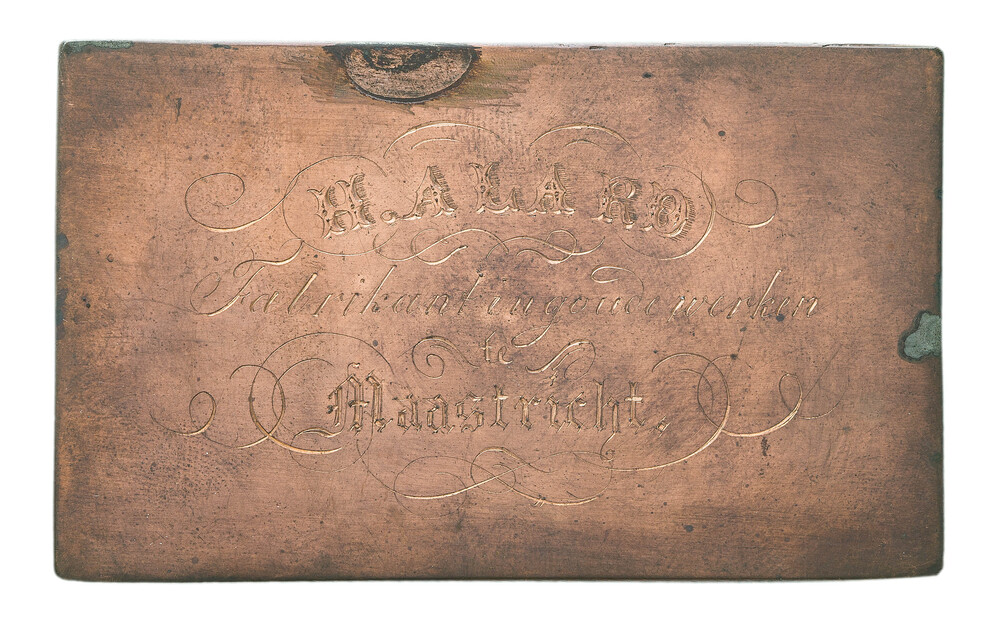 H. ALARD
Fabrikant in goude werken
te
Maastricht.